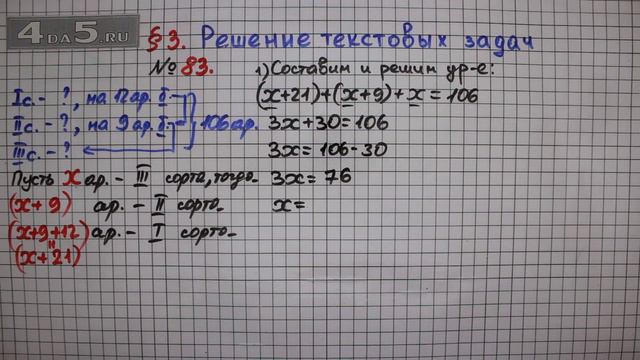 4DA5.RU
§3. Решение текстовых задач
№83.
Iс. - ?, на 12 ар. б.
IIс. - ?, на 9 ар. б.
IIIс. - ?
106 ар.
Пусть x ар. - III сорта, тогда
(x+9) ар. - II сорта
(x+9+12) ар. - I сорта
(x+21)
1) Составим и решим ур-е:
(x+21)+(x+9)+x=106
3x+30=106
3x=106-30
3x=76
x=